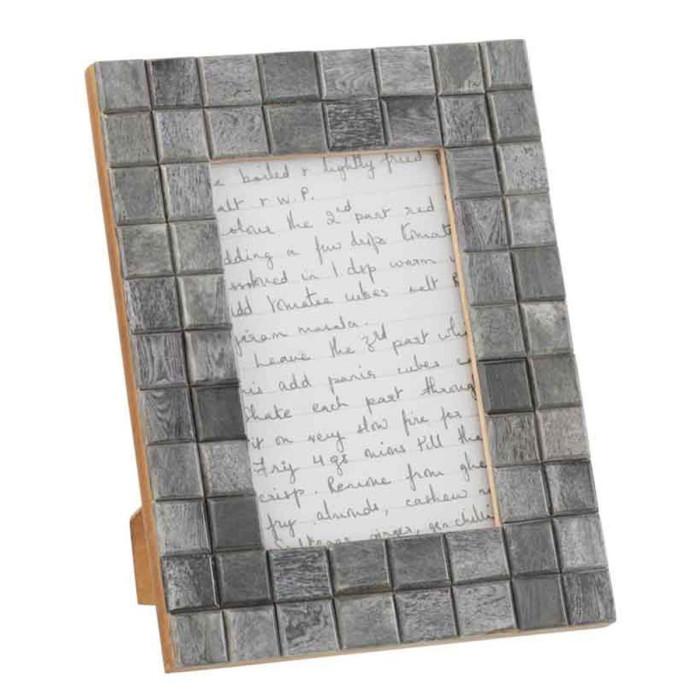 boiled & lightly fried
alt & w.p.
colour the 2nd part red
dding a few drops tomat
ssolved in 1 dsp warm
dd tomatoe cubes salt
garam masala.
Leave the 3rd part whi
add panir cubes
hake each part throug
it on very slow fire for
Fry 4 gs onions till the
crisp. Remove from ghe
fry almonds, cashew n
ginger, gr. chilli